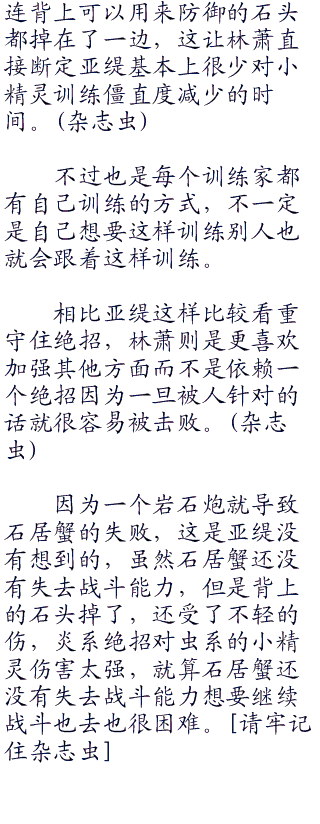 连背上可以用来防御的石头
都掉在了一边，这让林萧直
接断定亚缇基本上很少对小
精灵训练僵直度减少的时
间。(杂志虫)
不过也是每个训练家都
有自己训练的方式，不一定
是自己想要这样训练别人也
就会跟着这样训练。
相比亚缇这样比较看重
守住绝招，林萧则是更喜欢
加强其他方面而不是依赖一
个绝招因为一旦被人针对的
话就很容易被击败。(杂志
虫)
因为一个岩石炮就导致
石居蟹的失败，这是亚缇没
有想到的，虽然石居蟹还没
有失去战斗能力，但是背上
的石头掉了，还受了不轻的
伤，炎系绝招对虫系的小精
灵伤害太强，就算石居蟹还
没有失去战斗能力想要继续
战斗也去也很困难。[请牢记
住杂志虫]